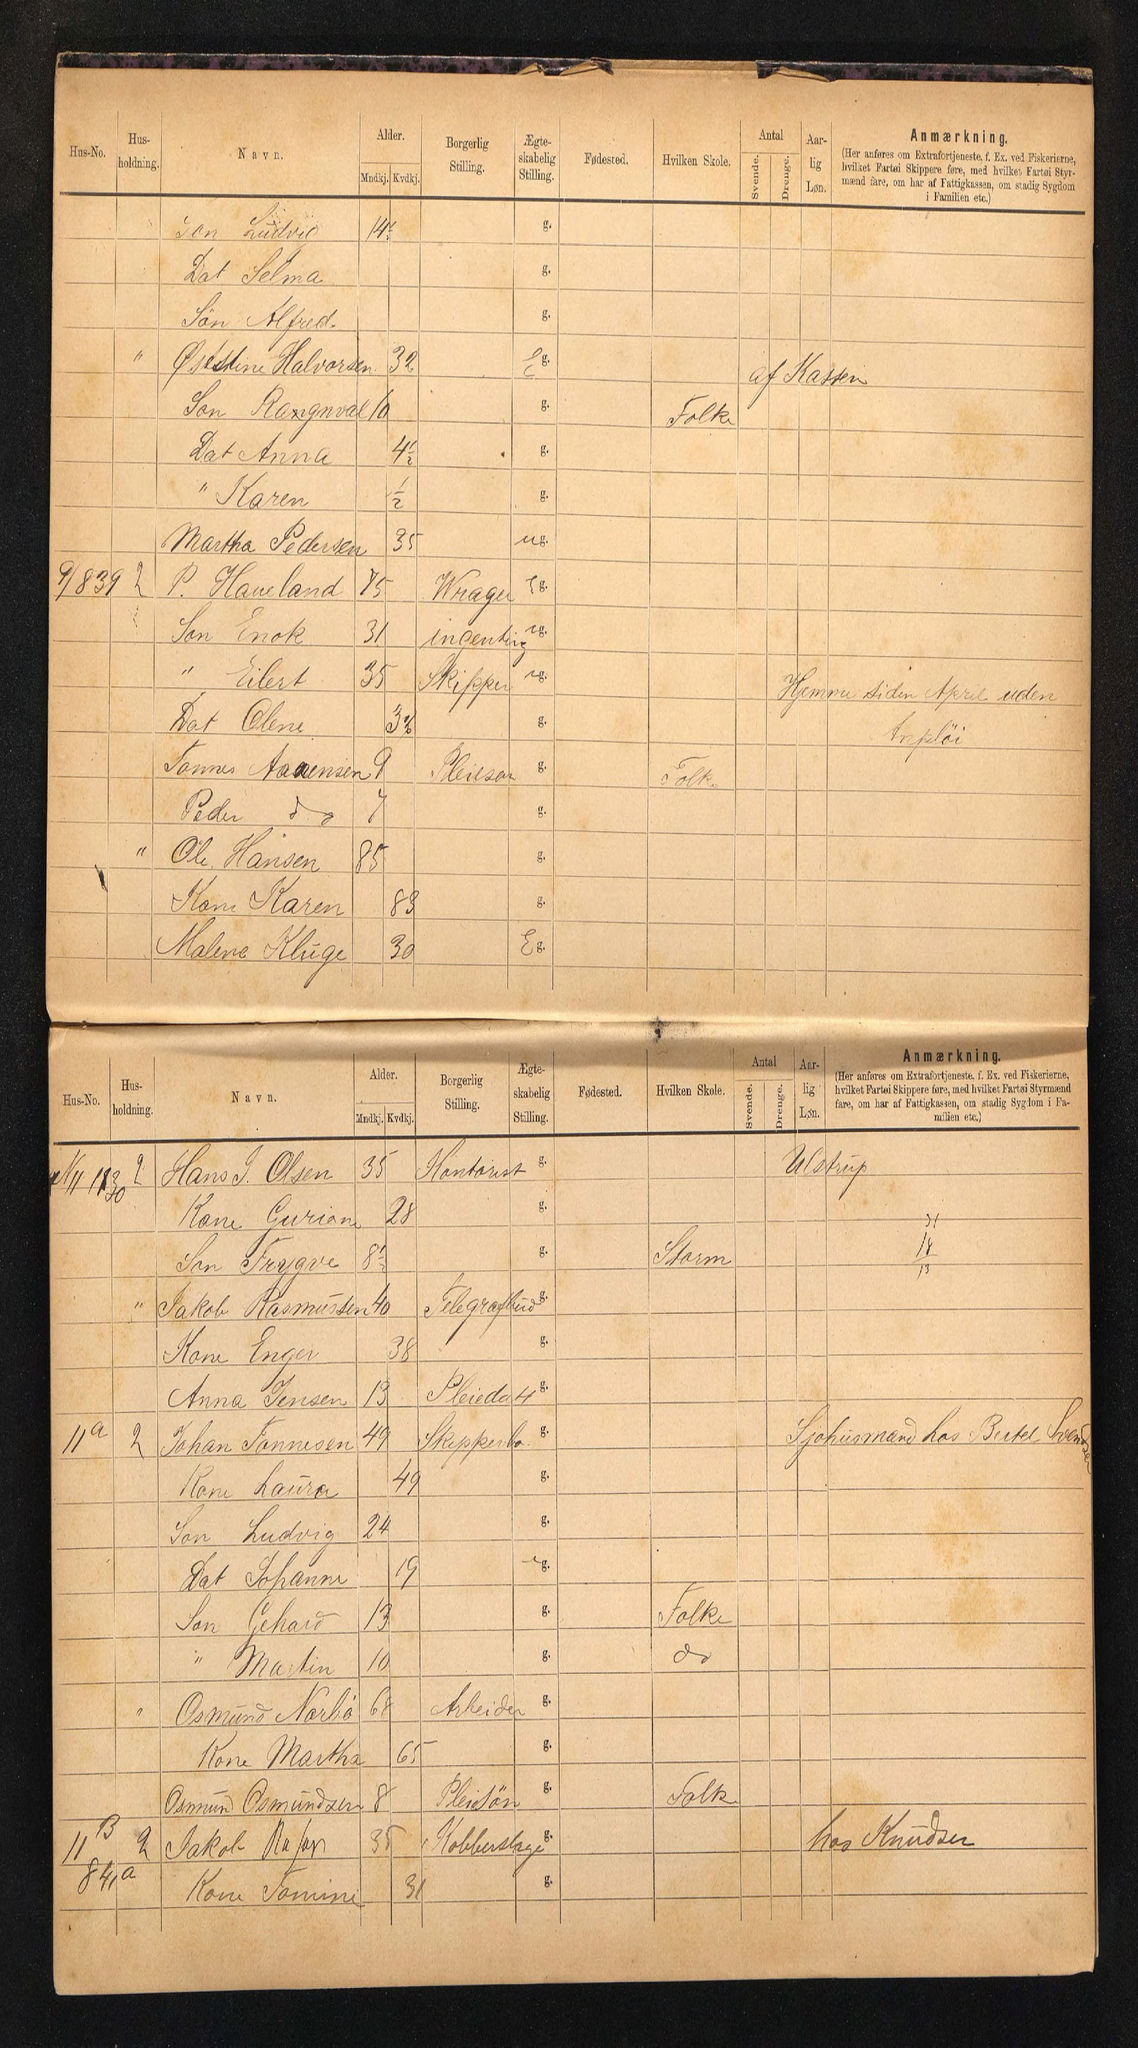 Hus-No. Hus-holdning. Navn. Alder. Mndkj. Kvdkj. Borgerlig Stilling. Ægte-skabelig Stilling. Fødested. Hvilken Skole. Antal Svende. Drenge. Aar-lig Løn. Anmærkning.
(Her anføres om Extrafortjeneste, f. Ex. ved Fiskerierne,
hvilket Fartøi Skippere føre, med hvilket Fartøi Styr-
mænd fare, om har af Fattigkassen, om stadig Sygdom
i Familien etc.)
Søn Ludvig 14½ g.
Dat Selma g.
Søn Alfred g.
" Halvorsen 32 Eg. af Kassen
Søn Rangnval 10 g. Folke
Dat Anna 4½ g.
" Karen ½ g.
Martha Pedersen 35 ug.
9/839 2 P. Haveland 75 Wrager Eg.
Søn Enok 31 ingenting ug.
" Eilert 35 Skipper ug. Hjemme siden April uden
Dat Olene g. Anpløi
Tønnes Aanensen 9 Pleiesøn g. Folk
Peder do 7 g.
" Ole Hansen 85 g.
Kone Karen 83 g.
Malene Kluge 30 Eg.
Hus-No. Hus-holdning. Navn. Alder. Mndkj. Kvdkj. Borgerlig Stilling. Ægte-skabelig Stilling. Fødested. Hvilken Skole. Antal Svende. Drenge. Aar-lig Løn. Anmærkning.
(Her anføres om Extrafortjeneste. f. Ex. ved Fiskerierne,
hvilket Fartøi Skippere føre, med hvilket Fartøi Styrmænd
fare, om har af Fattigkassen, om stadig Sygdom i Fa-
milien etc.)
2 Hans J. Olsen 35 Kontorist g. Ulstrup
Kone Guriane 28 g. 31
Søn Trygve 8½ g. Storm 18
13
" Jakob Rasmussen 40 Telegrafbud g.
Kone Enger 38 g.
Anna Jensen 13 Pleiedat g.
11a 2 Johan Tønnesen 49 Skipperbo g. Sjøhusmand hos Bertel Svendsen
Kone Laura 49 g.
Søn Ludvig 24 g.
Dat Johanne 19 ug.
Søn Gehard 13 g. Folke
" Martin 10 g. do
" Osmund Nørbø 68 Arbeider g.
Kone Martha 65 g.
Osmund Osmundsen 8 Pleisøn g. Folk
11B 2 Jakob 35 Kobberslage g. hos Knudsen
841a Kone Tomine 31 g.